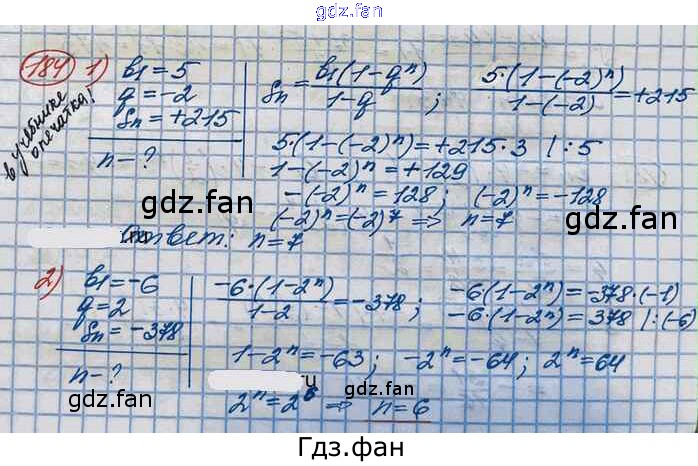 gdz.fan
184 1) b₁=5
q=-2
Sn=+215
n-?
в учебнике опечатка!
Sn=b₁(1-qⁿ)/(1-q); 5·(1-(-2)ⁿ)/(1-(-2))=+215
5·(1-(-2)ⁿ)=+215·3 |:5
1-(-2)ⁿ=+129
-(-2)ⁿ=128; (-2)ⁿ=-128
(-2)ⁿ=(-2)⁷ ⇒ n=7
gdz.fan
gdz.fan
gdz.fan
Ответ: n=7
2) b₁=-6
q=2
Sn=-378
n-?
-6·(1-2ⁿ)/(1-2)=-378; -6(1-2ⁿ)=-378·(-1)
-6·(1-2ⁿ)=378 |:(-6)
1-2ⁿ=-63; -2ⁿ=-64; 2ⁿ=64
2ⁿ=2⁶ ⇒ n=6
gdz.fan
gdz.fan
gdz.fan
Гдз.фан